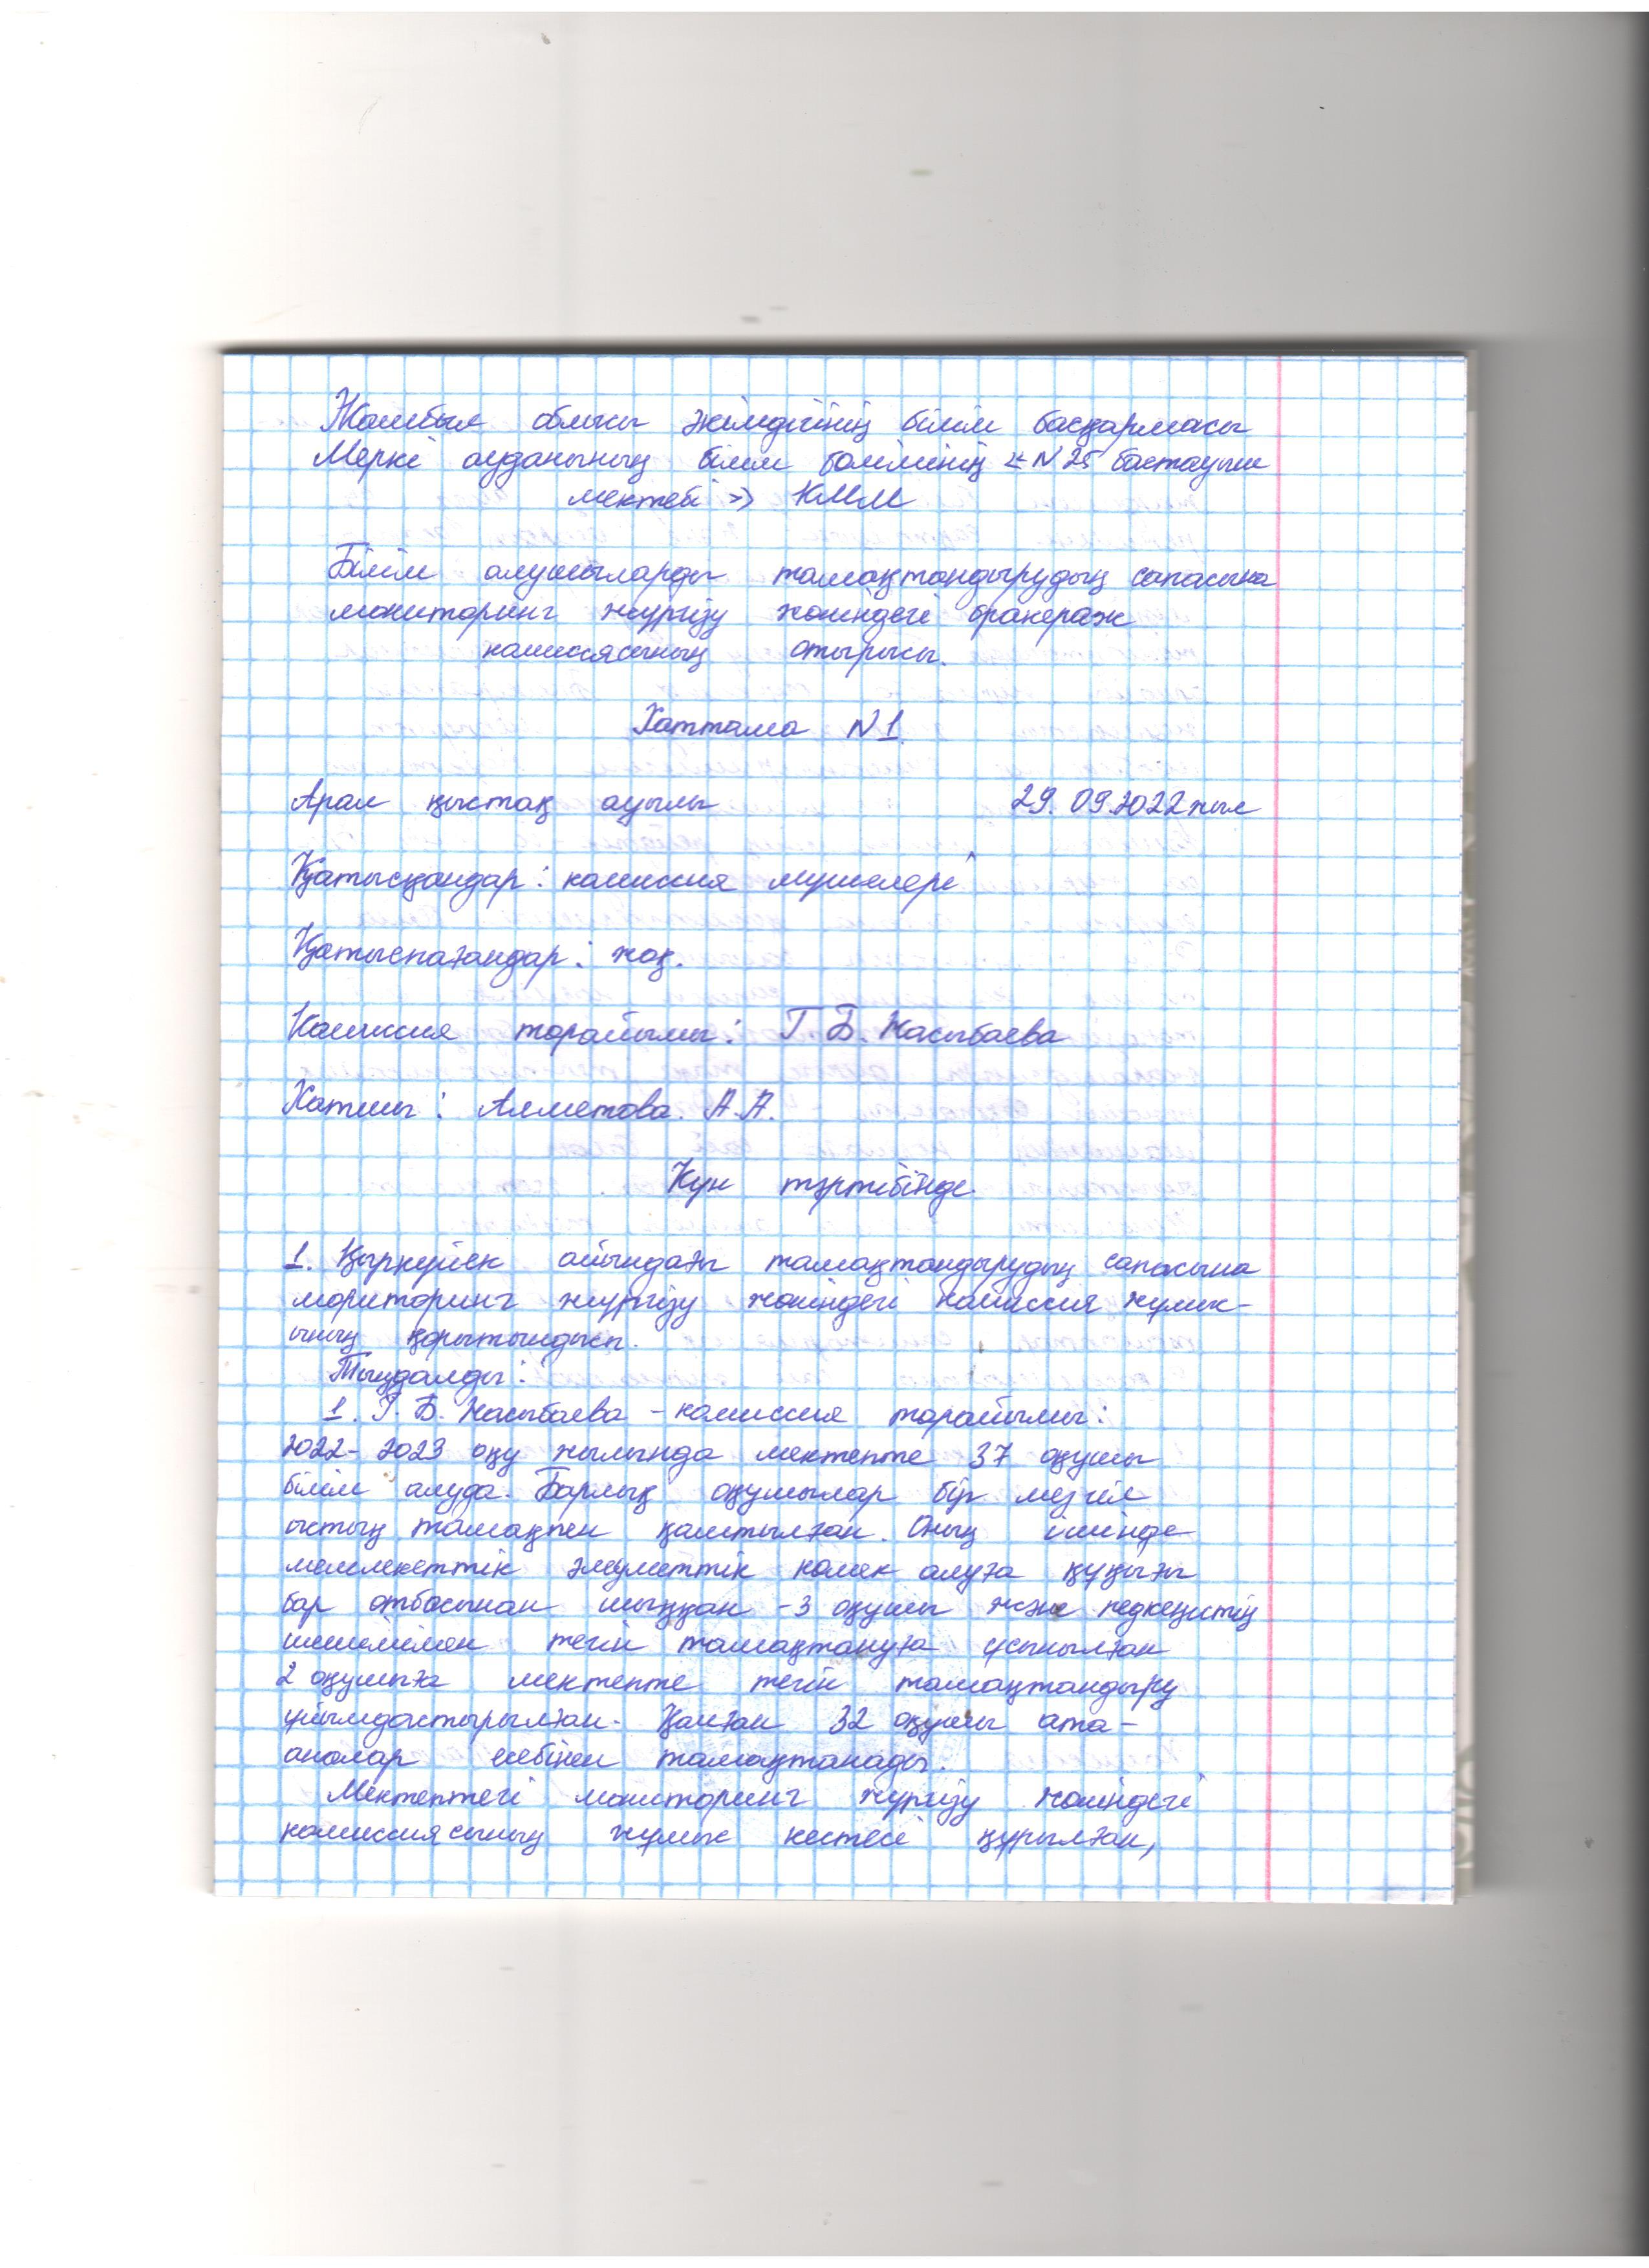 Жамбыл облысы әкімдігінің білім басқармасы
Меркі ауданының білім бөлімінің «N 25 бастауыш
мектебі» КММ
Білім алушыларды тамақтандырудың сапасына
мониторинг жүргізу жөніндегі бракераж
комиссиясының отырысы.
Хаттама N 1
Арал қыстақ ауылы 29.09.2022 жыл
Қатысқандар: комиссия мүшелері
Қатыспағандар: жоқ.
Комиссия төрайымы: Г. Б. Насыбаева
Хатшы: Ахметова. А.А.
Күн тәртібінде
1. Қыркүйек айындағы тамақтандырудың сапасына
мориторинг жүргізу жөніндегі комиссия жұмыс-
ының қорытындысы.
Тыңдалды:
1. Г. Б. Насыбаева - комиссия төрайымы:
2022-2023 оқу жылында мектепте 37 оқушы
білім алуда. Барлық оқушылар бір мезгіл
ыстық тамақпен қамтылған. Оның ішінде
мемлекеттік әлеуметтік көмек алуға құқығы
бар отбасынан шыққан -3 оқушы және педкеңестің
шешімімен тегін тамақтануға ұсынылған
2 оқушыға мектепте тегін тамақтандыру
ұйымдастырылған. Қалған 32 оқушы ата-
аналар есебінен тамақтанады.
Мектептегі мониторинг жүргізу жөніндегі
комиссиясының жұмыс кестесі құрылған,